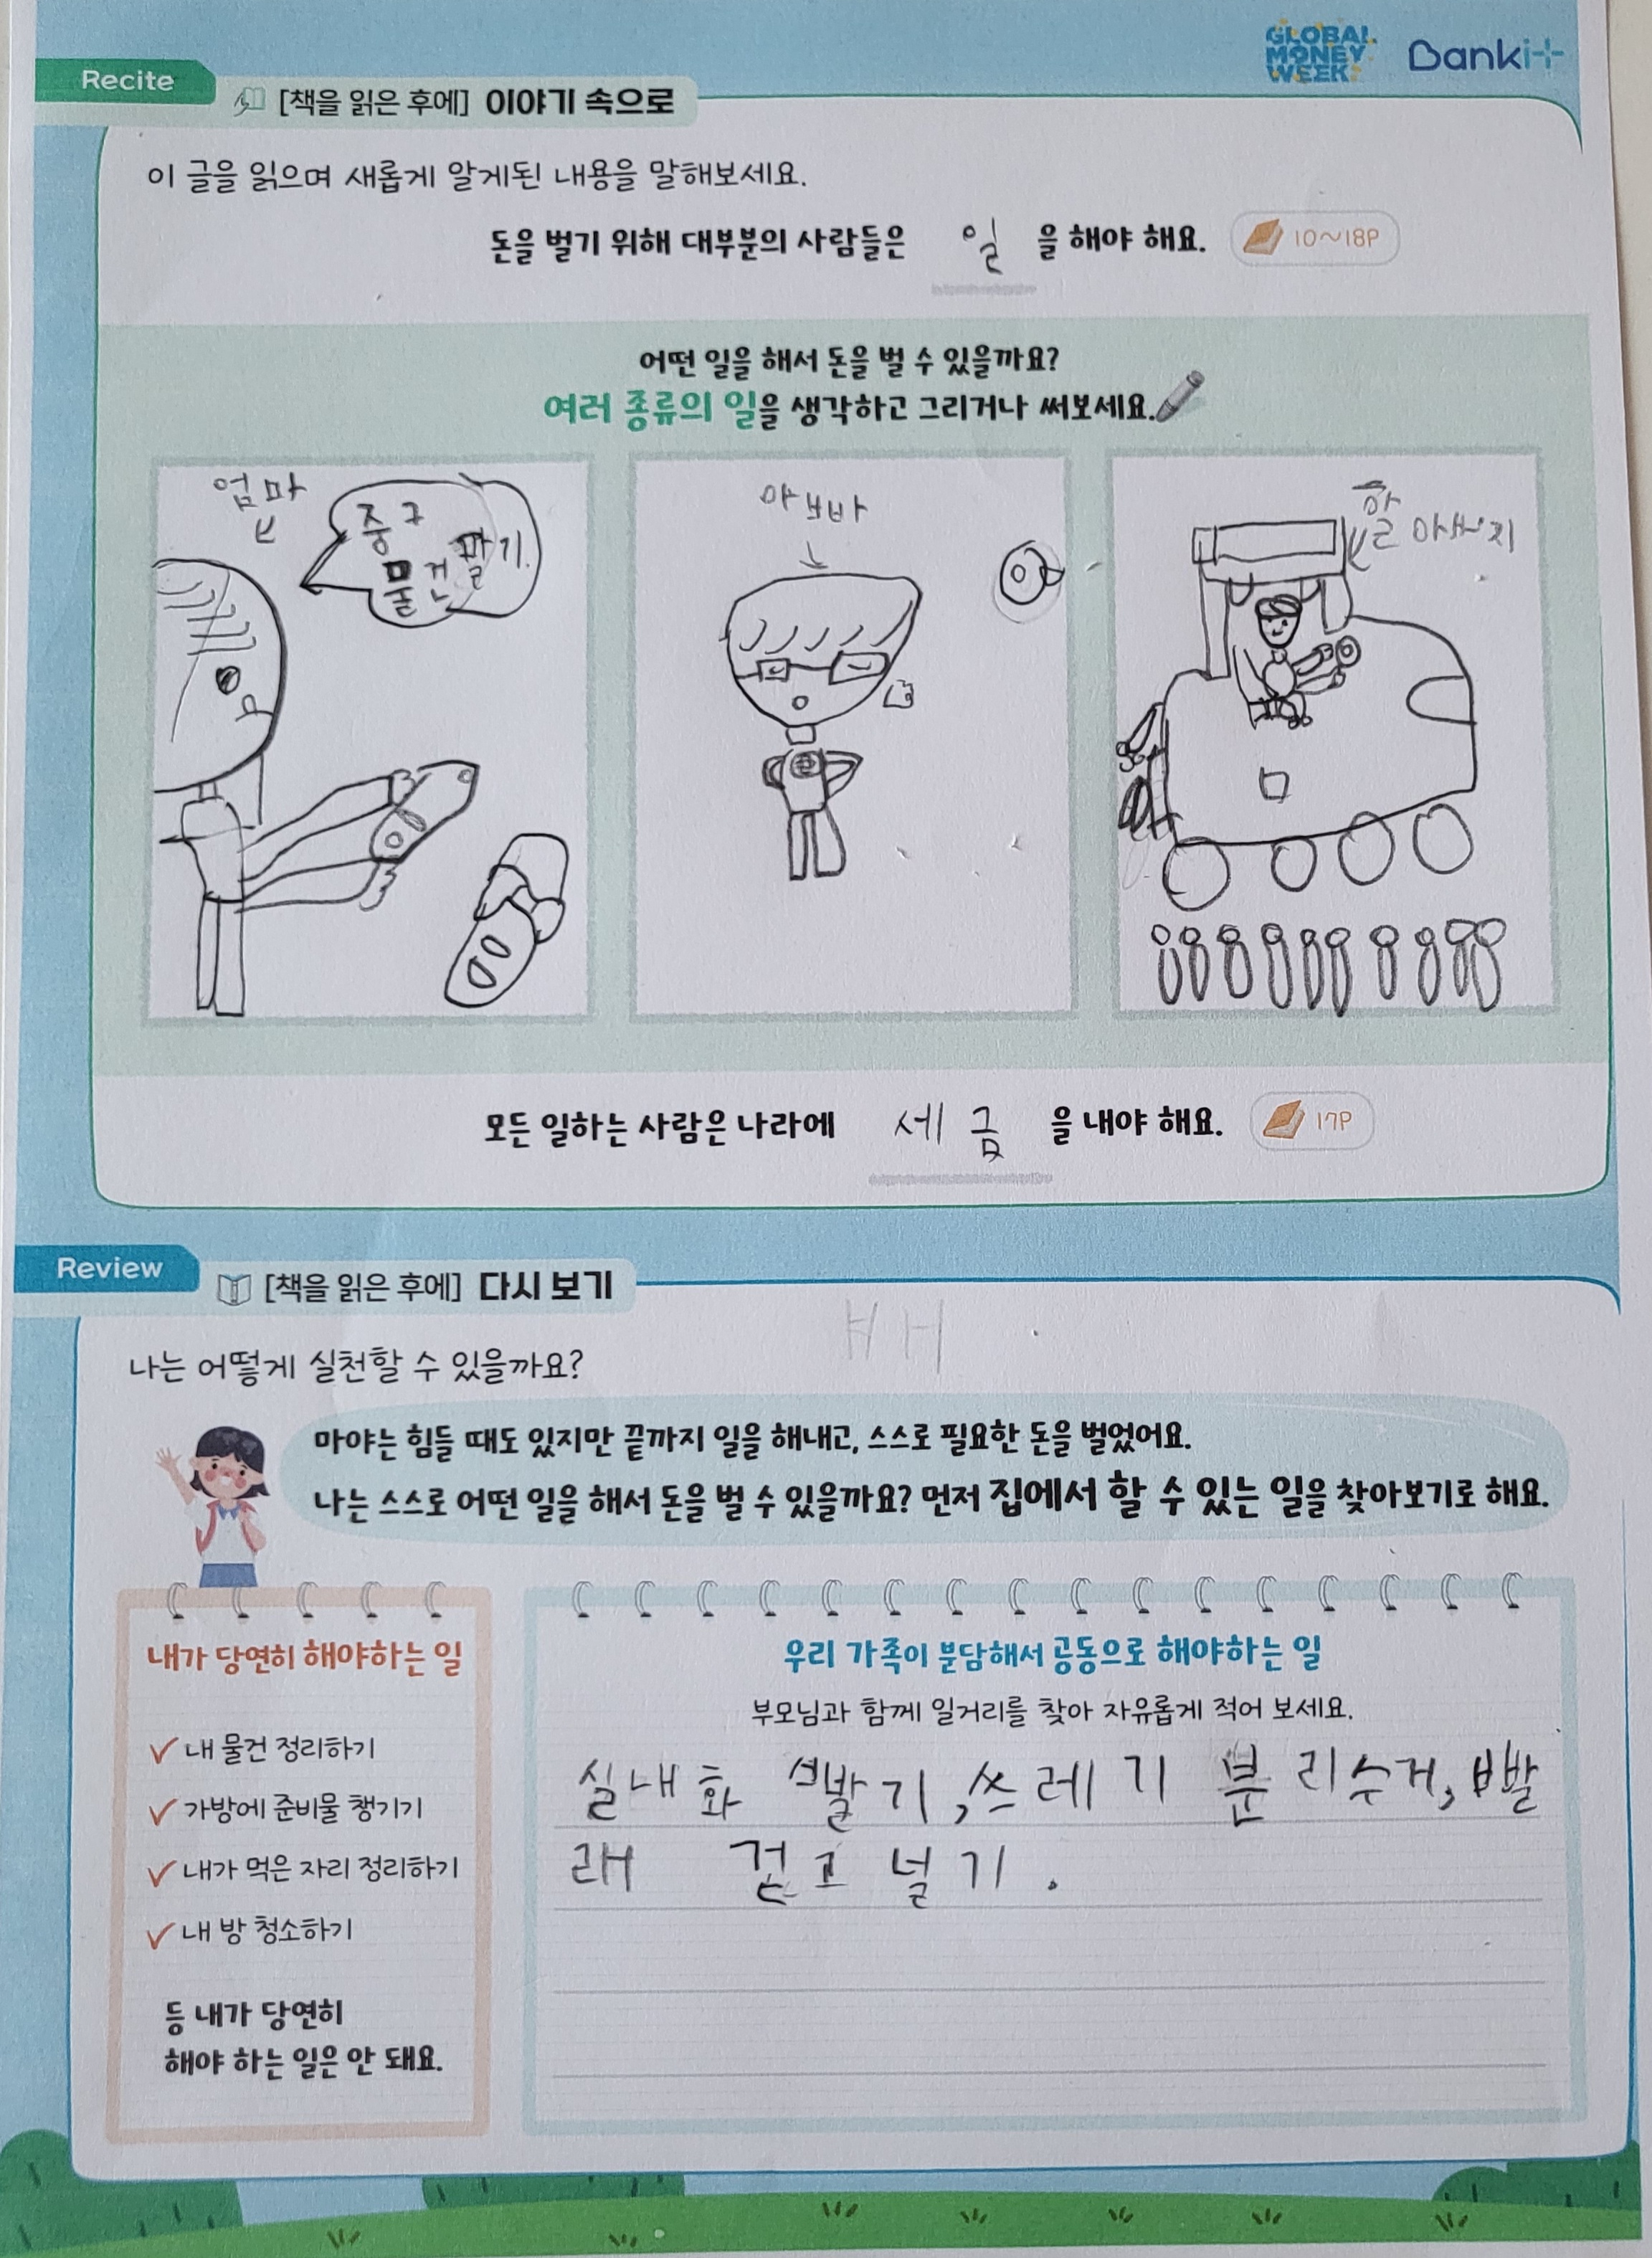 GLOBAL
MONEY
WEEK
Banki
Recite
[책을 읽은 후에] 이야기 속으로
이 글을 읽으며 새롭게 알게된 내용을 말해보세요.
돈을 벌기 위해 대부분의 사람들은 일 을 해야 해요. 10~18P
어떤 일을 해서 돈을 벌 수 있을까요?
여러 종류의 일을 생각하고 그리거나 써보세요.
엄마
중구
물건 팔기.
할아버지
모든 일하는 사람은 나라에 세금 을 내야 해요. 17P
Review
[책을 읽은 후에] 다시 보기
나는 어떻게 실천할 수 있을까요?
마야는 힘들 때도 있지만 끝까지 일을 해내고, 스스로 필요한 돈을 벌었어요.
나는 스스로 어떤 일을 해서 돈을 벌 수 있을까요? 먼저 집에서 할 수 있는 일을 찾아보기로 해요.
내가 당연히 해야하는 일
내 물건 정리하기
가방에 준비물 챙기기
내가 먹은 자리 정리하기
내 방 청소하기
등 내가 당연히
해야 하는 일은 안 돼요.
우리 가족이 분담해서 공동으로 해야하는 일
부모님과 함께 일거리를 찾아 자유롭게 적어 보세요.
실내화 빨기, 쓰레기 분리수거, 빨
래 걷고 널기.